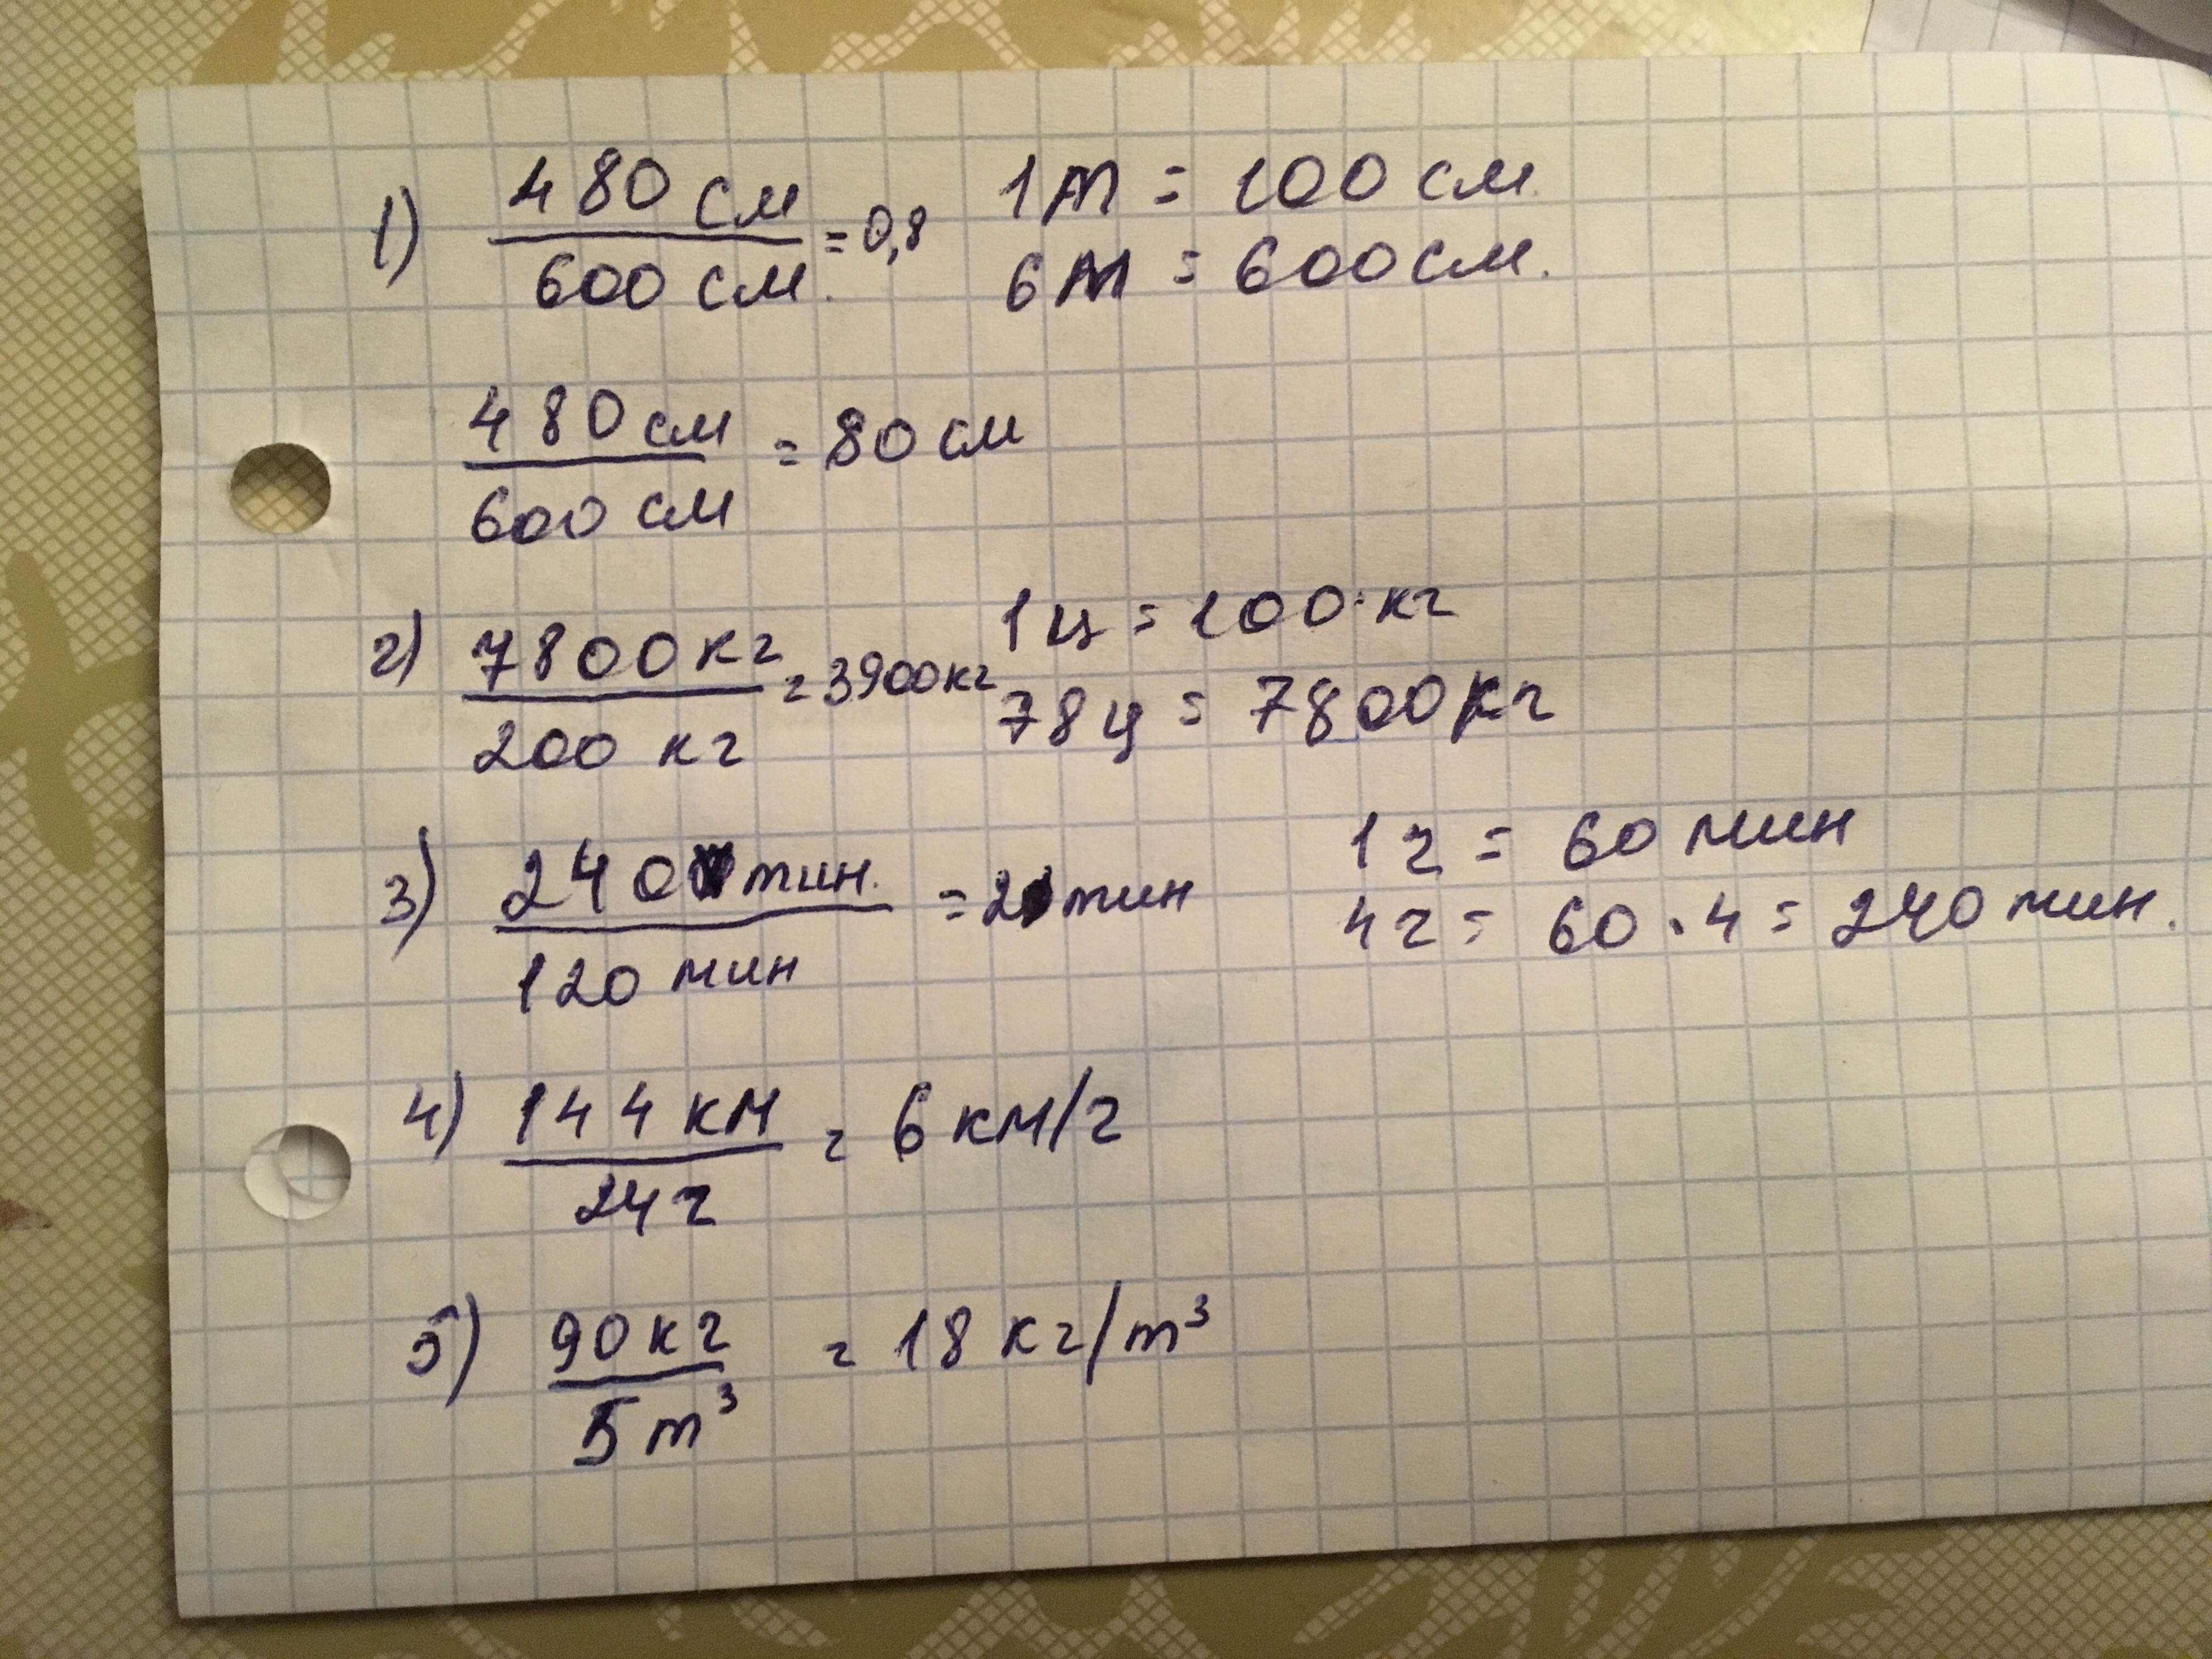 1) 480 см / 600 см. = 0,8 1м = 100 см.
6м = 600 см.
480 см / 600 см = 80 см
2) 7800 кг / 200 кг = 3900 кг 1ц = 100 кг
78ц = 7800 кг
3) 240 мин. / 120 мин = 2 мин 1ч = 60 мин
4ч = 60 · 4 = 240 мин.
4) 144 км / 24 ч = 6 км/ч
5) 90 кг / 5 m³ = 18 кг/m³